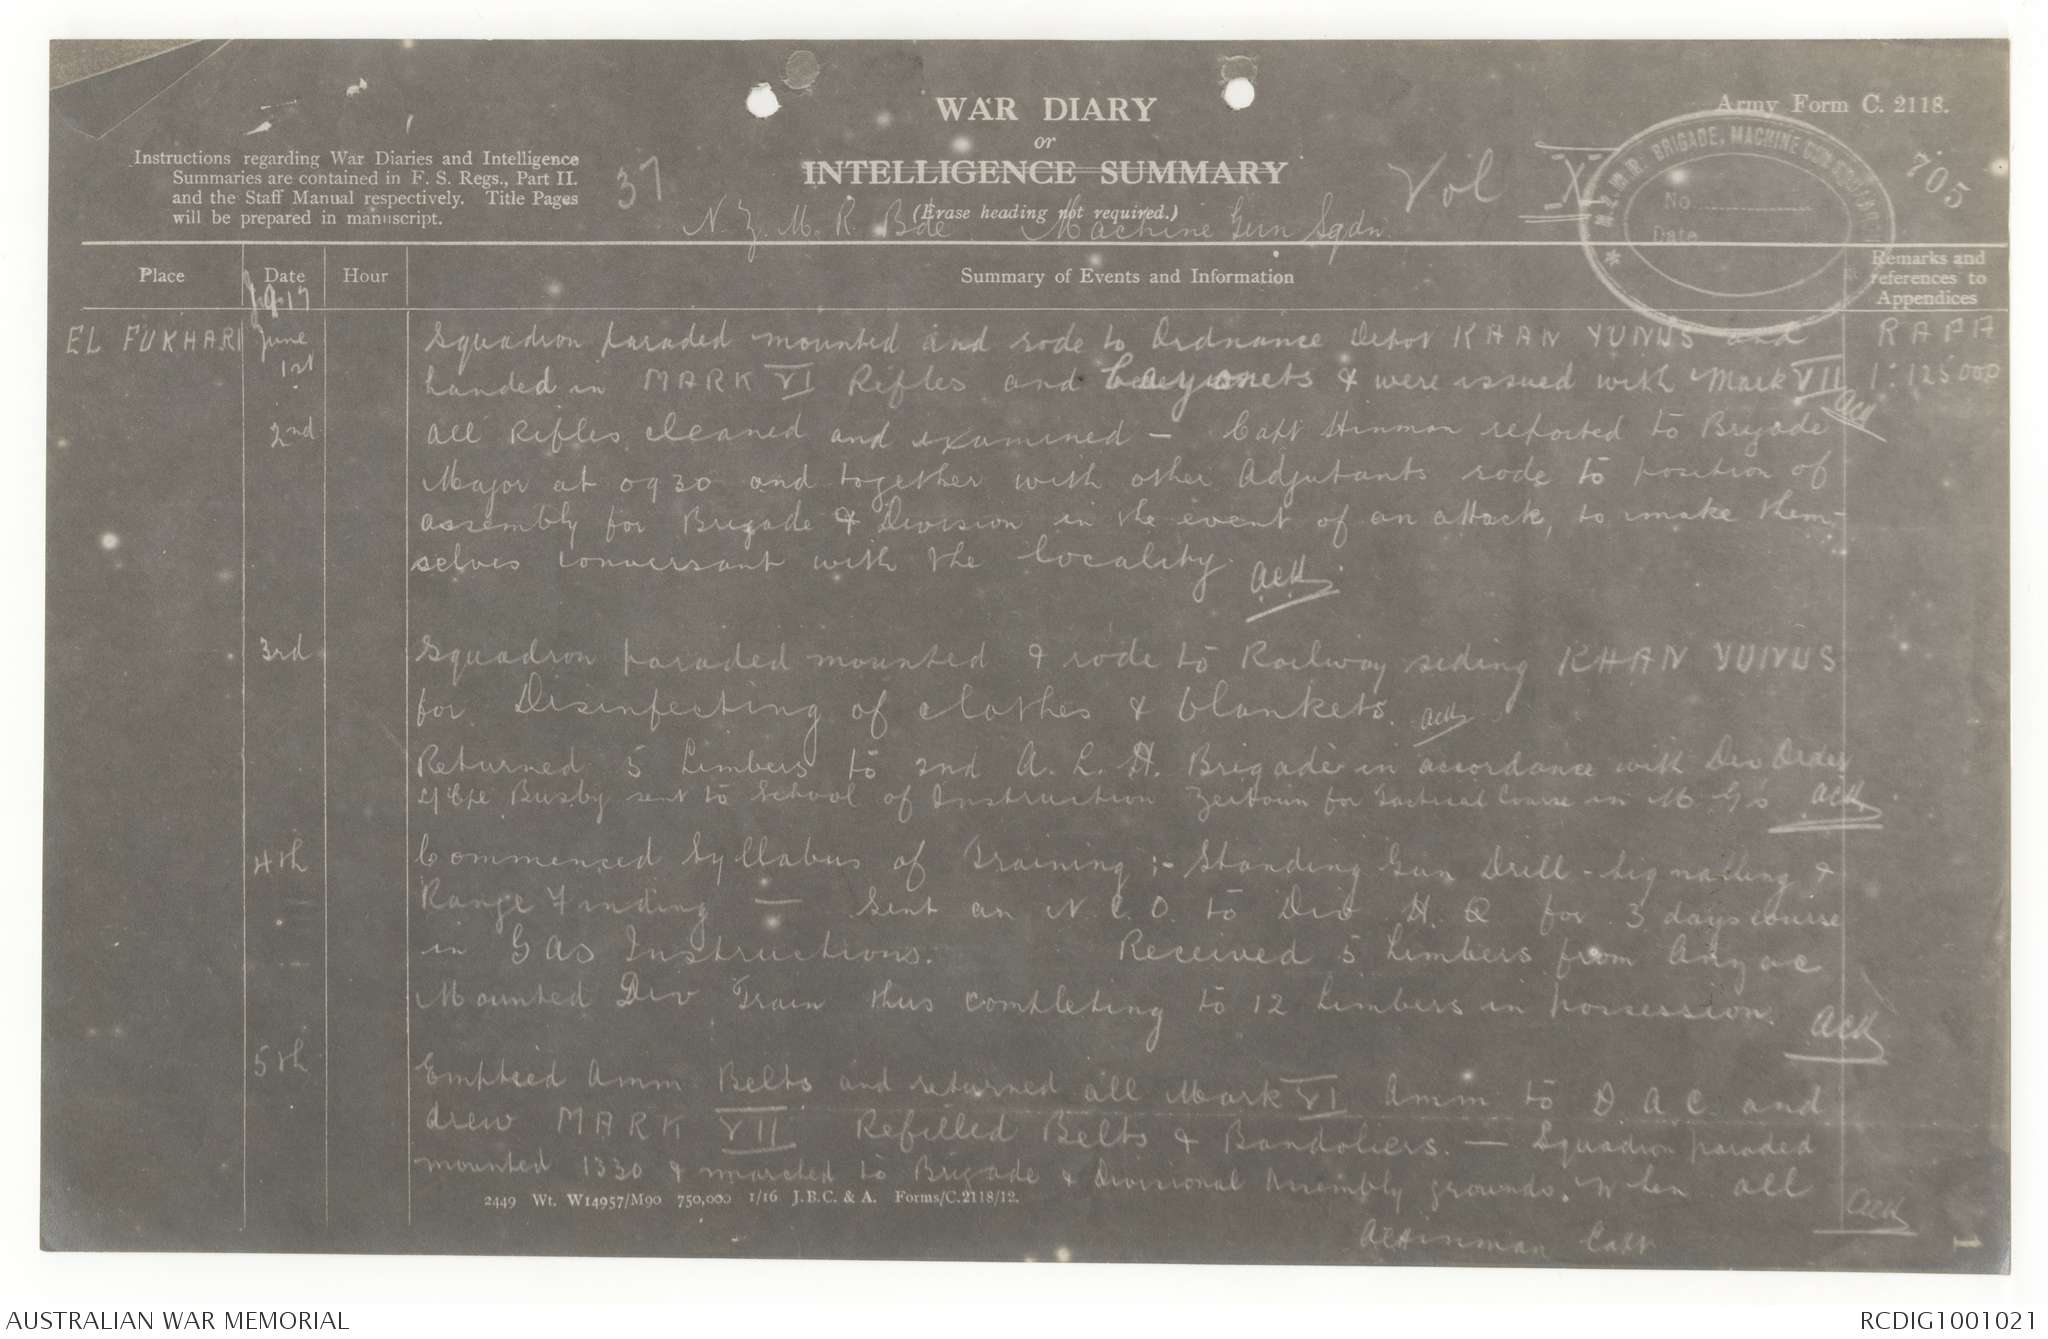 WAR DIARY
or
INTELLIGENCE SUMMARY
(Erase heading not required.)
Army Form C. 2118.
Instructions regarding War Diaries and Intelligence
Summaries are contained in F. S. Regs., Part II.
and the Staff Manual respectively. Title Pages
will be prepared in manuscript.
37
Vol X
705
N.Z.M.R. BRIGADE, MACHINE GUN SQUADRON
No
Date
N. Z. M. R. Bde Machine Gun Sqdn.
Place Date Hour Summary of Events and Information Remarks and references to Appendices
EL FUKHARI June 1st Squadron paraded mounted and rode to Ordnance Depot KHAN YUNUS and RAFA
handed in MARK VI Rifles and Bayonets & were issued with Mark VII 1:125000
ACH
2nd All Rifles cleaned and examined — Capt Hinman reported to Brigade
Major at 0930 and together with other Adjutants rode to position of
assembly for Brigade & Division in the event of an attack, to make them-
selves conversant with the locality. ACH
3rd Squadron paraded mounted & rode to Railway siding KHAN YUNUS
for Disinfecting of clothes & blankets. ACH
Returned 5 Limbers to 2nd A. L. H. Brigade in accordance with Div Order
Busby sent to School of Instruction Zeitoun for Tactical Course in M G's ACH
4th Commenced Syllabus of Training :- Standing Gun Drill - Signalling &
Range Finding — Sent an N.C.O. to Div H. Q for 3 days course
in Gas Instructions. Received 5 Limbers from Anzac
Mounted Div Train thus completing to 12 Limbers in possession. ACH
5th Emptied Amm Belts and returned all Mark VI Amm to D A C. and
drew MARK VII Refilled Belts & Bandoliers. — Squadron paraded
mounted 1330 & marched to Brigade & Divisional Assembly grounds. When all
ACH
2449 Wt. W14957/M90 750,000 1/16 J.B.C. & A. Forms/C.2118/12.
ACHinman Capt
AUSTRALIAN WAR MEMORIAL
RCDIG1001021